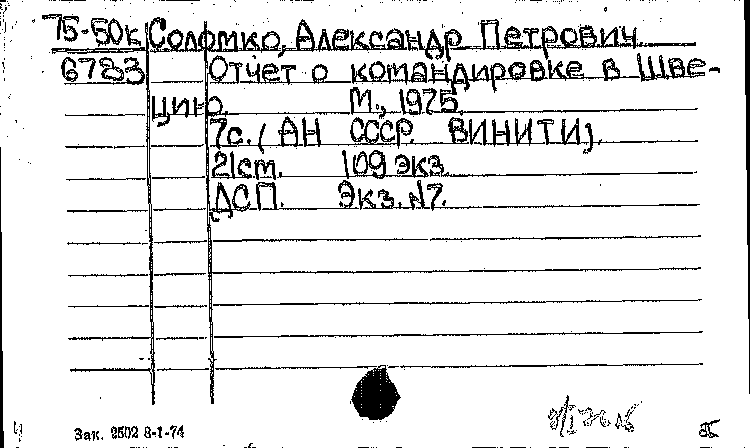 75-50к Соломко, Александр Петрович.
6783 Отчет о командировке в Шве-
цию. М., 1975.
7с. (АН СССР. ВИНИТИ).
21ст. 109 экз.
ДСП. Экз. №7.
Зак. 2502 8-1-74